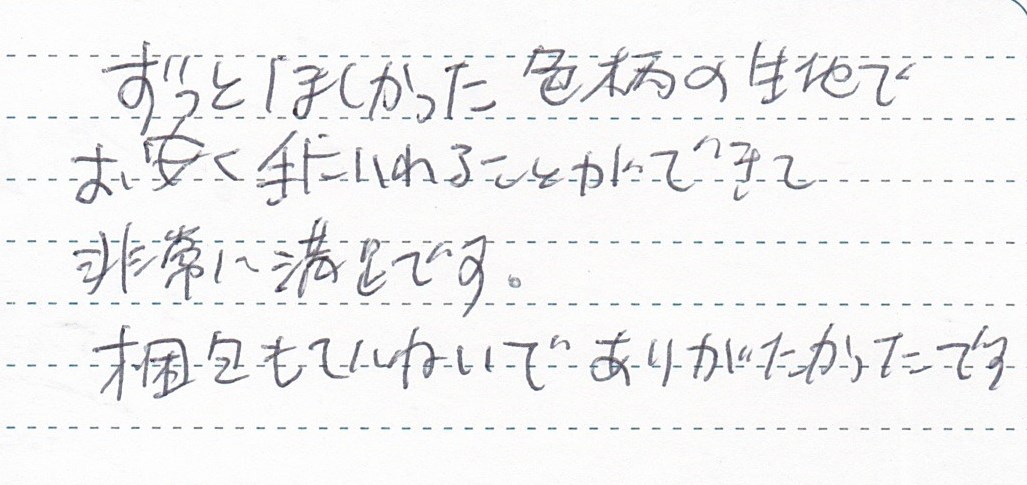 ずっとほしかった色柄の生地で
お安く手にいれることができて
非常に満足です。
梱包もていねいでありがたかったです